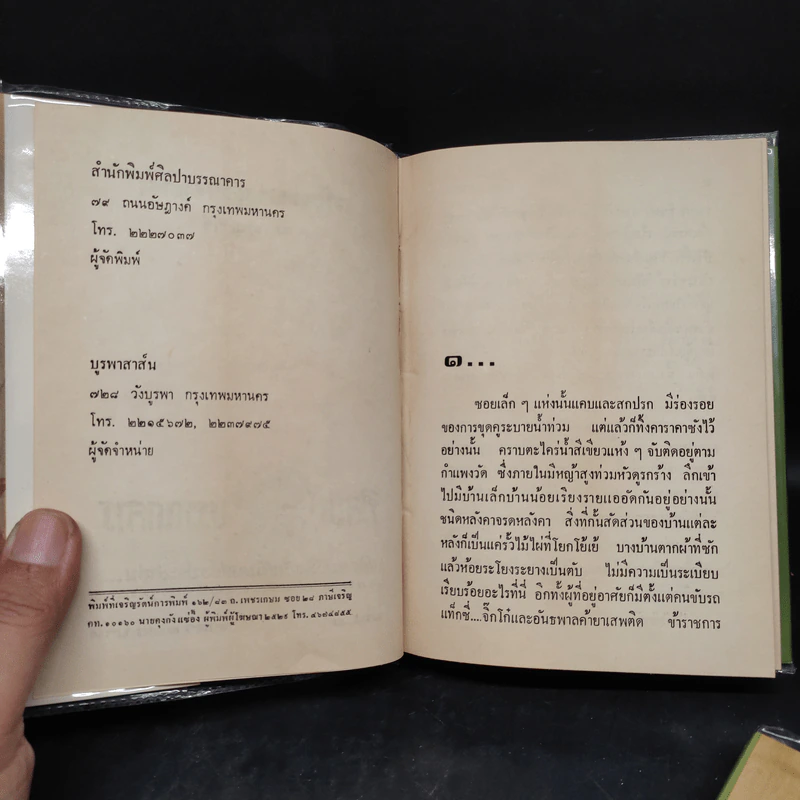 สำนักพิมพ์ศิลปาบรรณาคาร
๗๙ ถนนอัษฎางค์ กรุงเทพมหานคร
โทร. ๒๒๒๗๐๓๗
ผู้จัดพิมพ์
บูรพาสาส์น
๗๒๘ วังบูรพา กรุงเทพมหานคร
โทร. ๒๒๑๕๖๗๒, ๒๒๓๗๙๗๕
ผู้จัดจำหน่าย
พิมพ์ที่เจริญรัตน์การพิมพ์ ๑๖๒/๔๓ ถ. เพชรเกษม ซอย ๒๘ ภาษีเจริญ
กท. ๑๐๑๖๐ นายคุงกัง แซ่อึง ผู้พิมพ์ผู้โฆษณา ๒๕๒๙ โทร. ๔๖๗๔๔๕๕
๑...
ซอยเล็ก ๆ แห่งนั้นแคบและสกปรก มีร่องรอย
ของการขุดคูระบายน้ำท่วม แต่แล้วก็ทิ้งคาราคาซังไว้
อย่างนั้น คราบตะไคร่น้ำสีเขียวแห้ง ๆ จับติดอยู่ตาม
กำแพงวัด ซึ่งภายในมีหญ้าสูงท่วมหัวดูรกร้าง ลึกเข้า
ไปมีบ้านเล็กบ้านน้อยเรียงรายแออัดกันอยู่อย่างนั้น
ชนิดหลังคาจรดหลังคา สิ่งที่กั้นสัดส่วนของบ้านแต่ละ
หลังก็เป็นแค่รั้วไม้ไผ่ที่โยกโย้เย้ บางบ้านตากผ้าที่ซัก
แล้วห้อยระโยงระยางเป็นตับ ไม่มีความเป็นระเบียบ
เรียบร้อยอะไรที่นี่ อีกทั้งผู้ที่อยู่อาศัยก็มีตั้งแต่คนขับรถ
แท็กซี่....จิ๊กโก๋และอันธพาลค้ายาเสพติด ข้าราชการ